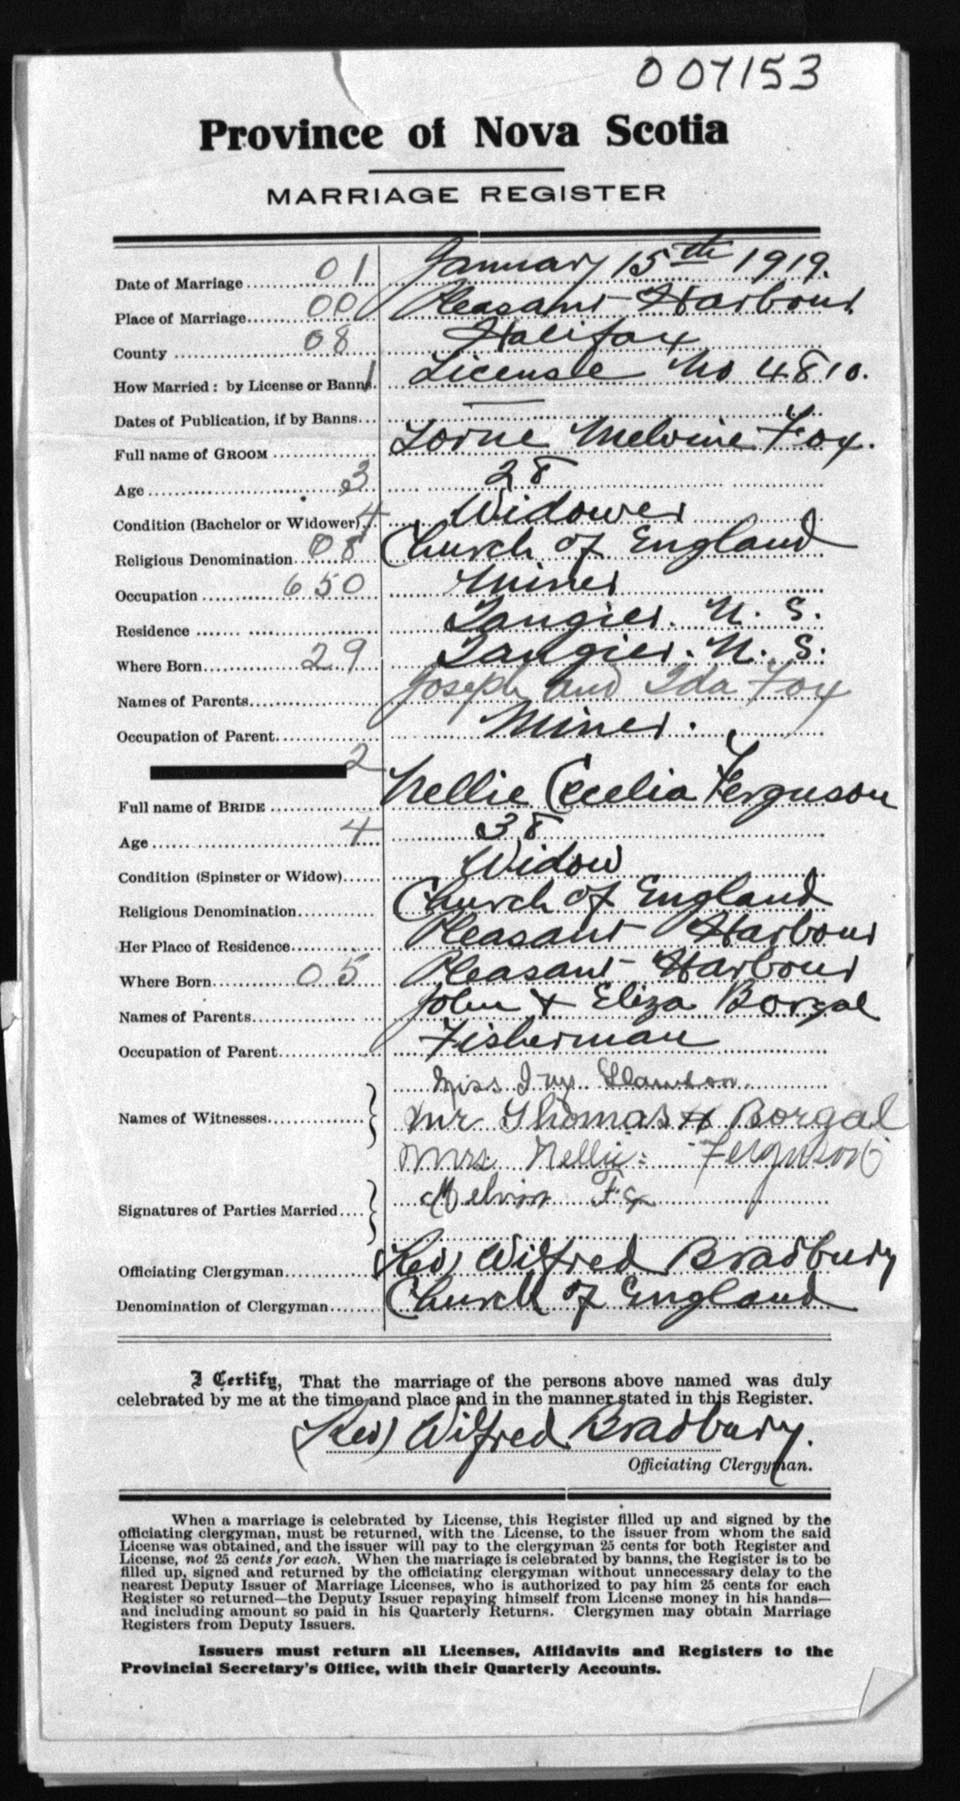 007153
Province of Nova Scotia
MARRIAGE REGISTER
Date of Marriage 01 January 15th 1919.
Place of Marriage 00 Pleasant Harbour
County 08 Halifax
How Married: by License or Banns 1 License No 4810.
Dates of Publication, if by Banns —
Full name of GROOM Lorne Melvine Fox.
Age 3 28
Condition (Bachelor or Widower) 4 Widower
Religious Denomination 08 Church of England
Occupation 650 Miner
Residence Tangier. N. S.
Where Born 29 Tangier. N. S.
Names of Parents Joseph and Ida Fox
Occupation of Parent Miner.
2
Full name of BRIDE Nellie Cecelia Ferguson
Age 4 38
Condition (Spinster or Widow) Widow
Religious Denomination Church of England
Her Place of Residence Pleasant Harbour
Where Born 05 Pleasant Harbour
Names of Parents John & Eliza Borgal
Occupation of Parent Fisherman
Miss
Names of Witnesses Mr Thomas H Borgal
Mrs. Nellie Ferguson
Signatures of Parties Married Melvin Fox
Officiating Clergyman (Rev) Wilfred Bradbury
Denomination of Clergyman Church of England
I Certify, That the marriage of the persons above named was duly
celebrated by me at the time and place and in the manner stated in this Register.
(Rev) Wilfred Bradbury.
Officiating Clergyman.
When a marriage is celebrated by License, this Register filled up and signed by the
officiating clergyman, must be returned, with the License, to the issuer from whom the said
License was obtained, and the issuer will pay to the clergyman 25 cents for both Register and
License, not 25 cents for each. When the marriage is celebrated by banns, the Register is to be
filled up, signed and returned by the officiating clergyman without unnecessary delay to the
nearest Deputy Issuer of Marriage Licenses, who is authorized to pay him 25 cents for each
Register so returned—the Deputy Issuer repaying himself from License money in his hands—
and including amount so paid in his Quarterly Returns. Clergymen may obtain Marriage
Registers from Deputy Issuers.
Issuers must return all Licenses, Affidavits and Registers to the
Provincial Secretary's Office, with their Quarterly Accounts.